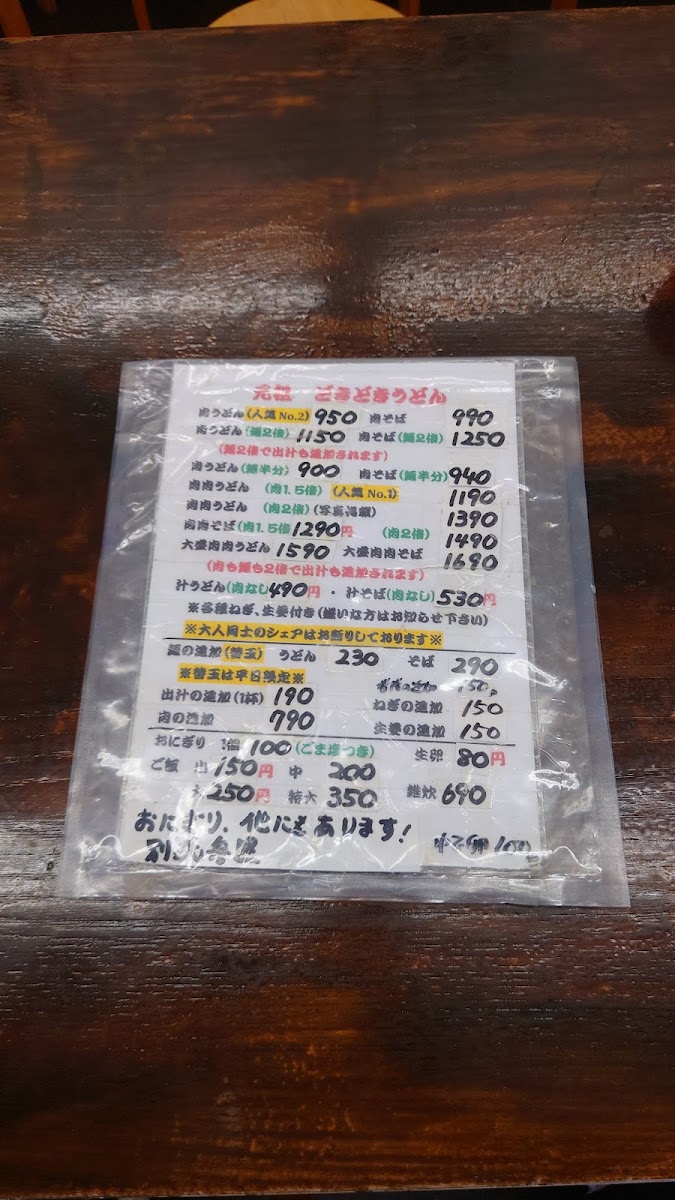 元祖 どきどきうどん
肉うどん(人気No.2) 950 肉そば 990
肉うどん(麺2倍) 1150 肉そば(麺2倍) 1250
(麺2倍で出汁も追加されます)
肉うどん(麺半分) 900 肉そば(麺半分) 940
肉肉うどん (肉1.5倍) (人気No.1) 1190
肉肉うどん (肉2倍)(写真掲載) 1390
肉肉そば(肉1.5倍 1290円 (肉2倍) 1490
大盛肉肉うどん 1590 大盛肉肉そば 1690
(肉も麺も2倍で出汁も追加されます)
汁うどん(肉なし) 490円 ・ 汁そば(肉なし) 530円
※各種ねぎ、生姜付き(嫌いな方はお知らせ下さい)
※大人同士のシェアはお断りしております※
麺の追加(替玉) うどん 230 そば 290
※替玉は平日限定※
150
出汁の追加(1杯) 190 ねぎの追加 150
肉の追加 790 生姜の追加 150
おにぎり 1個 100 (ごま塩つき) 生卵 80円
ご飯 小 150円 中 200
大 250円 特大 350 雑炊 690
おにぎり、他にもあります!